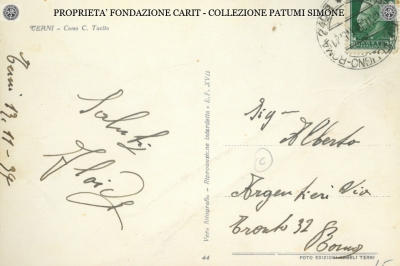 PROPRIETA' FONDAZIONE CARIT - COLLEZIONE PATUMI SIMONE
TERNI - Corso C. Tacito
Terni 12-11-39
Saluti
Vera fotografia - Riproduzione interdetta - S.F. XVII
Sig-
Alberto
Argentieri Via
Tronto 32
Roma
44
FOTO EDIZIONI ANGELI TERNI